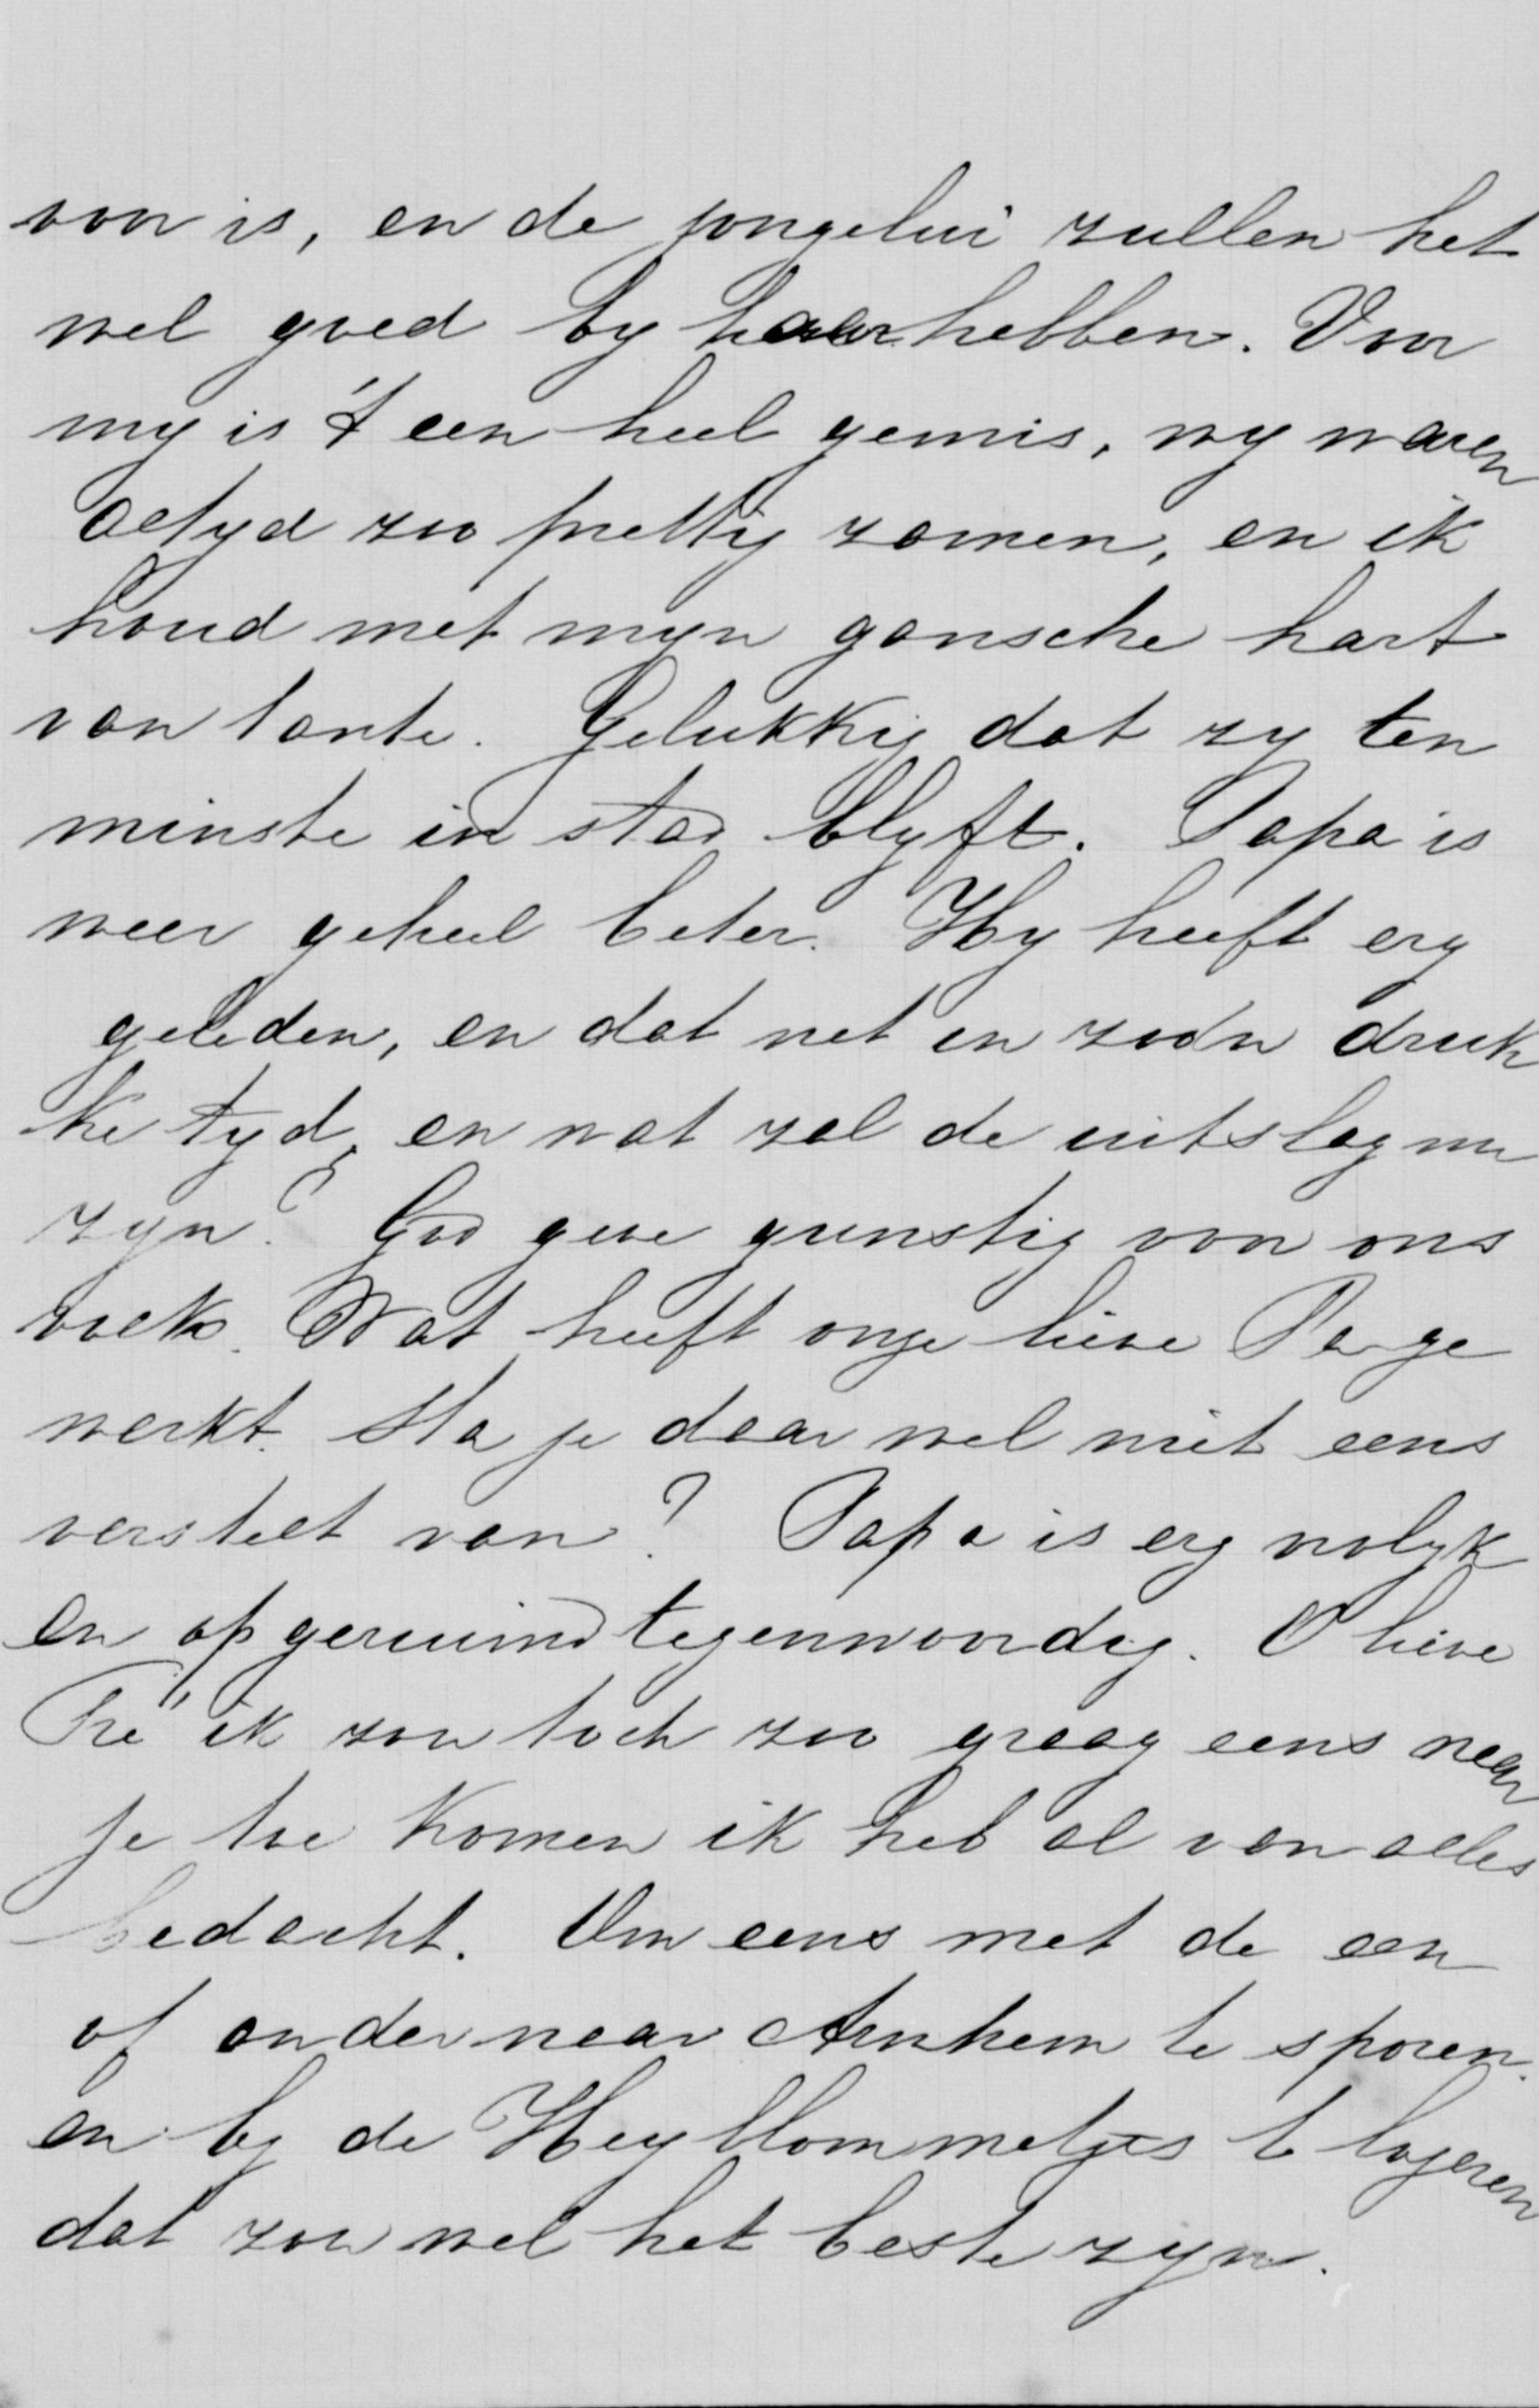 voor is, en de jongelui zullen het
wel goed by haar hebben. Voor
my is 't een heel gemis, wy waren
altyd zoo prettig zamen, en ik
houd met myn gansche hart
van tante. Gelukkig dat zy ten
minste in stad blyft. Papa is
weer geheel beter. Hy heeft erg
geleden, en dat net in zoo'n druk
ke tyd, en wat zal de uitslag nu
zyn? God geve gunstig voor ons
Wat heeft onze lieve Pa ge
werkt. Sta je daar wel niet eens
verstelt van? Papa is erg vrolyk
en opgeruimd tegenwoordig. O lieve
Tré ik zou toch zoo graag eens naar
je toe komen ik heb al van alles
bedacht. Om eens met de een
of ander naar Arnhem te sporen.
en by de Heyblommetjes te logeren
dat zou wel het beste zyn.